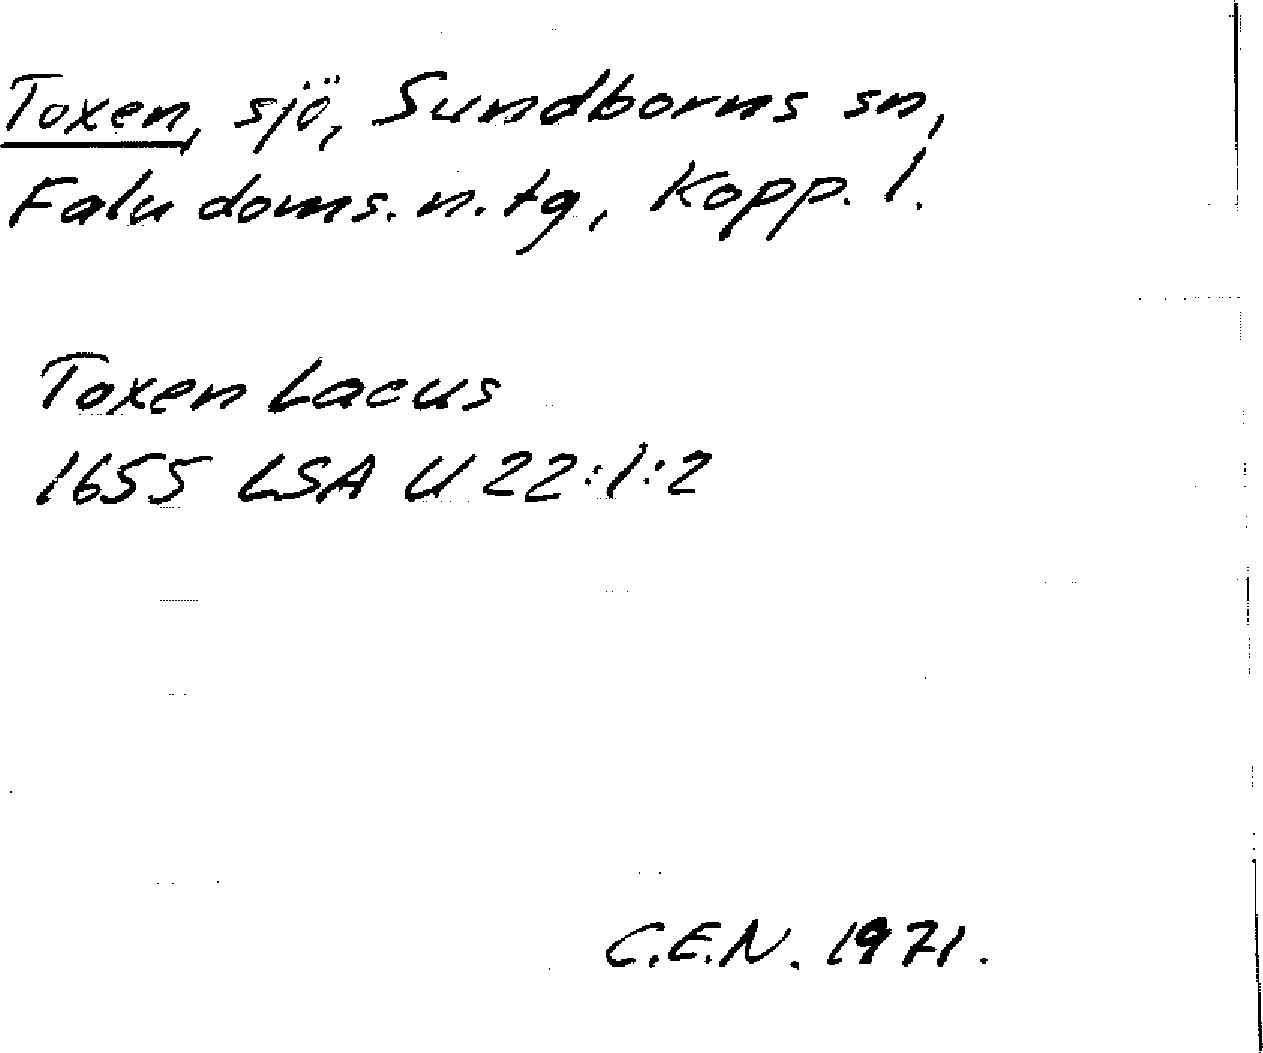 Toxen, sjö, Sundborns sn,
Falu doms. n. tg, Kopp. l.
Toxen Lacus
1655 LSA U 22:1:2
C.E.N. 1971.